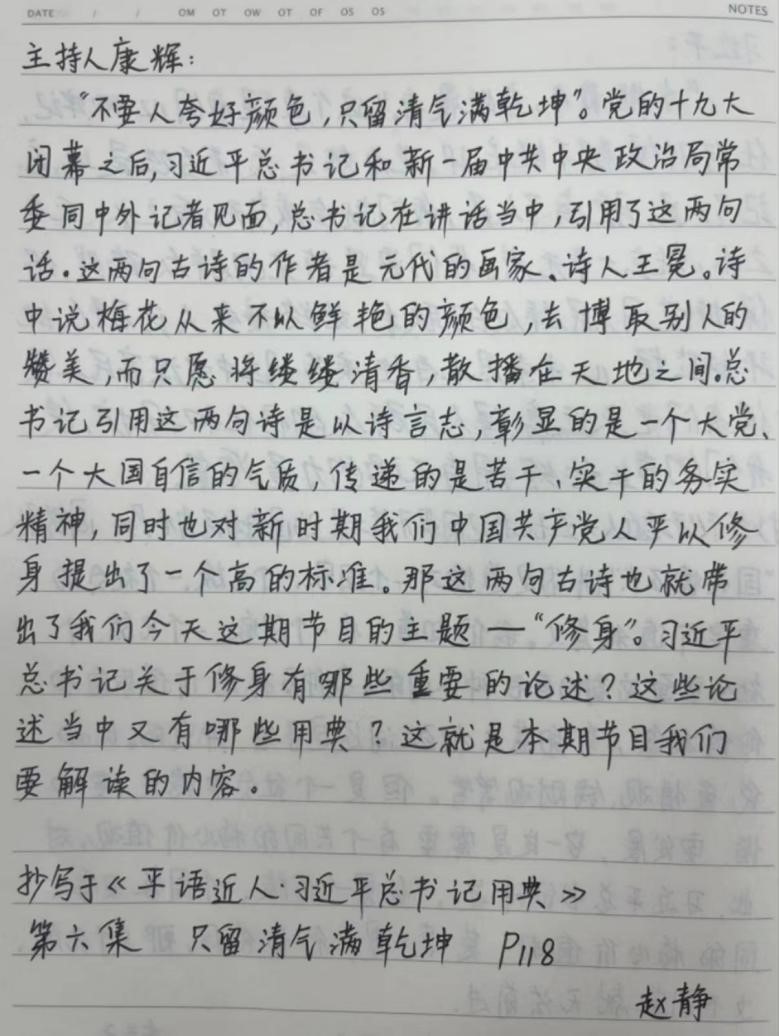 DATE / / OM OT OW OT OF OS OS NOTES
主持人康辉：
“不要人夸好颜色，只留清气满乾坤”。党的十九大
闭幕之后，习近平总书记和新一届中共中央政治局常
委同中外记者见面，总书记在讲话当中，引用了这两句
话。这两句古诗的作者是元代的画家、诗人王冕。诗
中说梅花从来不以鲜艳的颜色，去博取别人的
赞美，而只愿将缕缕清香，散播在天地之间。总
书记引用这两句诗是以诗言志，彰显的是一个大党、
一个大国自信的气质，传递的是苦干、实干的务实
精神，同时也对新时期我们中国共产党人严以修
身提出了一个高的标准。那这两句古诗也就带
出了我们今天这期节目的主题—“修身”。习近平
总书记关于修身有哪些重要的论述？这些论
述当中又有哪些用典？这就是本期节目我们
要解读的内容。
抄写于《平语近人·习近平总书记用典》
第六集 只留清气满乾坤 P118
赵静